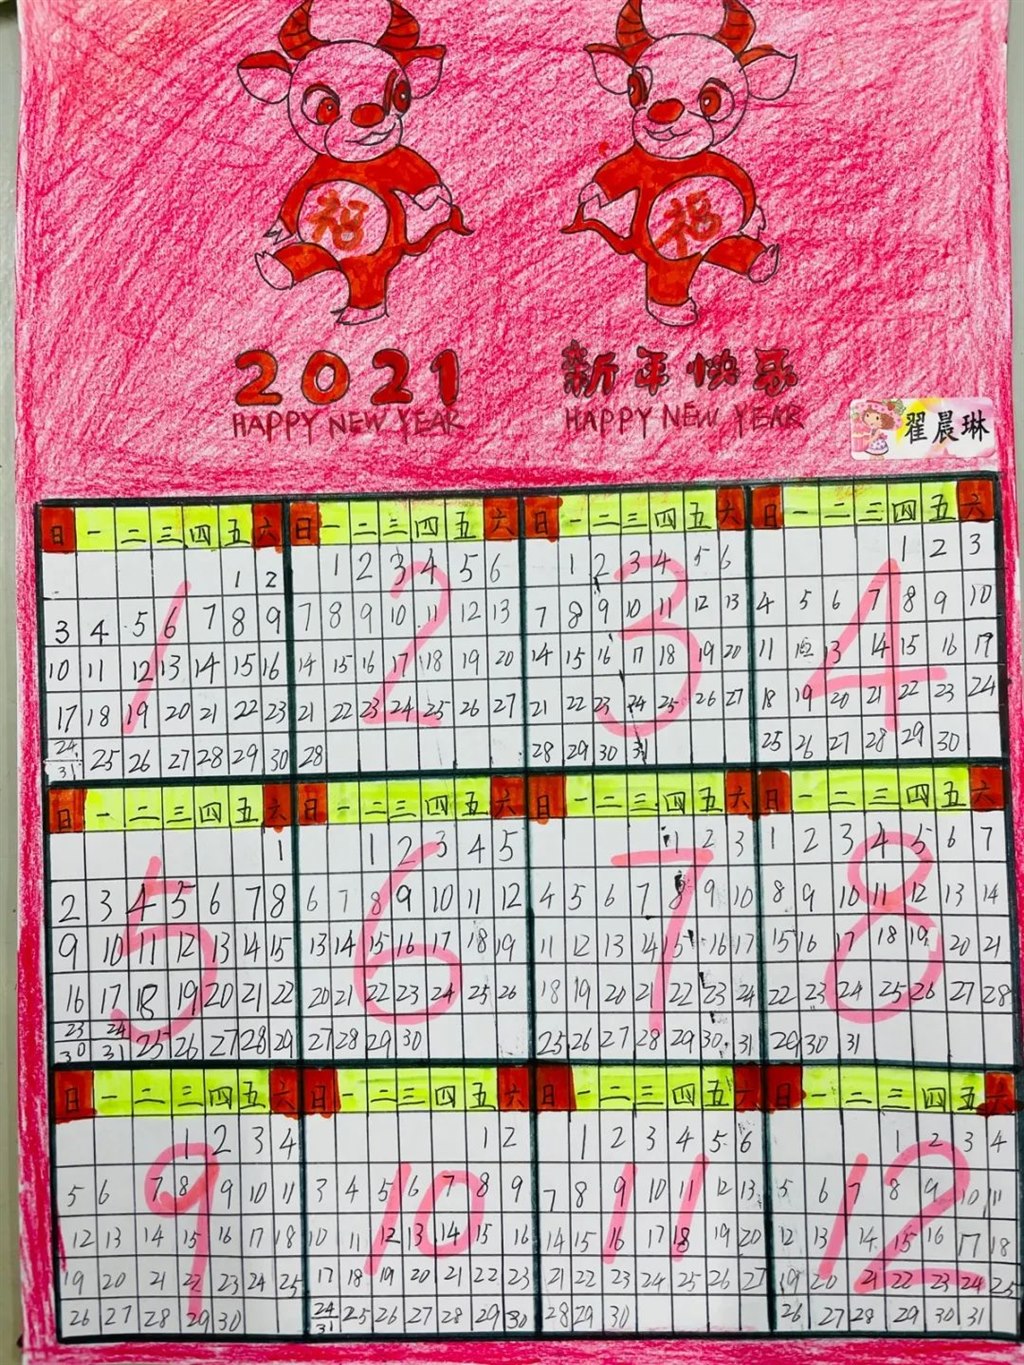 福 福
2021 新年快乐
HAPPY NEW YEAR HAPPY NEW YEAR
翟晨琳
日 一 二 三 四 五 六 日 一 二 三 四 五 六 日 一 二 三 四 五 六 日 一 二 三 四 五 六
1 2 3 4
1 2 1 2 3 4 5 6 1 2 3 4 5 6 1 2 3
3 4 5 6 7 8 9 7 8 9 10 11 12 13 7 8 9 10 11 12 13 4 5 6 7 8 9 10
10 11 12 13 14 15 16 14 15 16 17 18 19 20 14 15 16 17 18 19 20 11 12 13 14 15 16 17
17 18 19 20 21 22 23 21 22 23 24 25 26 27 21 22 23 24 25 26 27 18 19 20 21 22 23 24
24/31 25 26 27 28 29 30 28 28 29 30 31 25 26 27 28 29 30
日 一 二 三 四 五 六 日 一 二 三 四 五 六 日 一 二 三 四 五 六 日 一 二 三 四 五 六
5 6 7 8
1 1 2 3 4 5 1 2 3 1 2 3 4 5 6 7
2 3 4 5 6 7 8 6 7 8 9 10 11 12 4 5 6 7 8 9 10 8 9 10 11 12 13 14
9 10 11 12 13 14 15 13 14 15 16 17 18 19 11 12 13 14 15 16 17 15 16 17 18 19 20 21
16 17 18 19 20 21 22 20 21 22 23 24 25 26 18 19 20 21 22 23 24 22 23 24 25 26 27 28
23/30 24/31 25 26 27 28 29 27 28 29 30 25 26 27 28 29 30 31 29 30 31
日 一 二 三 四 五 六 日 一 二 三 四 五 六 日 一 二 三 四 五 六 日 一 二 三 四 五 六
9 10 11 12
1 2 3 4 1 2 1 2 3 4 5 6 1 2 3 4
5 6 7 8 9 10 11 3 4 5 6 7 8 9 7 8 9 10 11 12 13 5 6 7 8 9 10 11
12 13 14 15 16 17 18 10 11 12 13 14 15 16 14 15 16 17 18 19 20 12 13 14 15 16 17 18
19 20 21 22 23 24 25 17 18 19 20 21 22 23 21 22 23 24 25 26 27 19 20 21 22 23 24 25
26 27 28 29 30 24/31 25 26 27 28 29 30 28 29 30 26 27 28 29 30 31